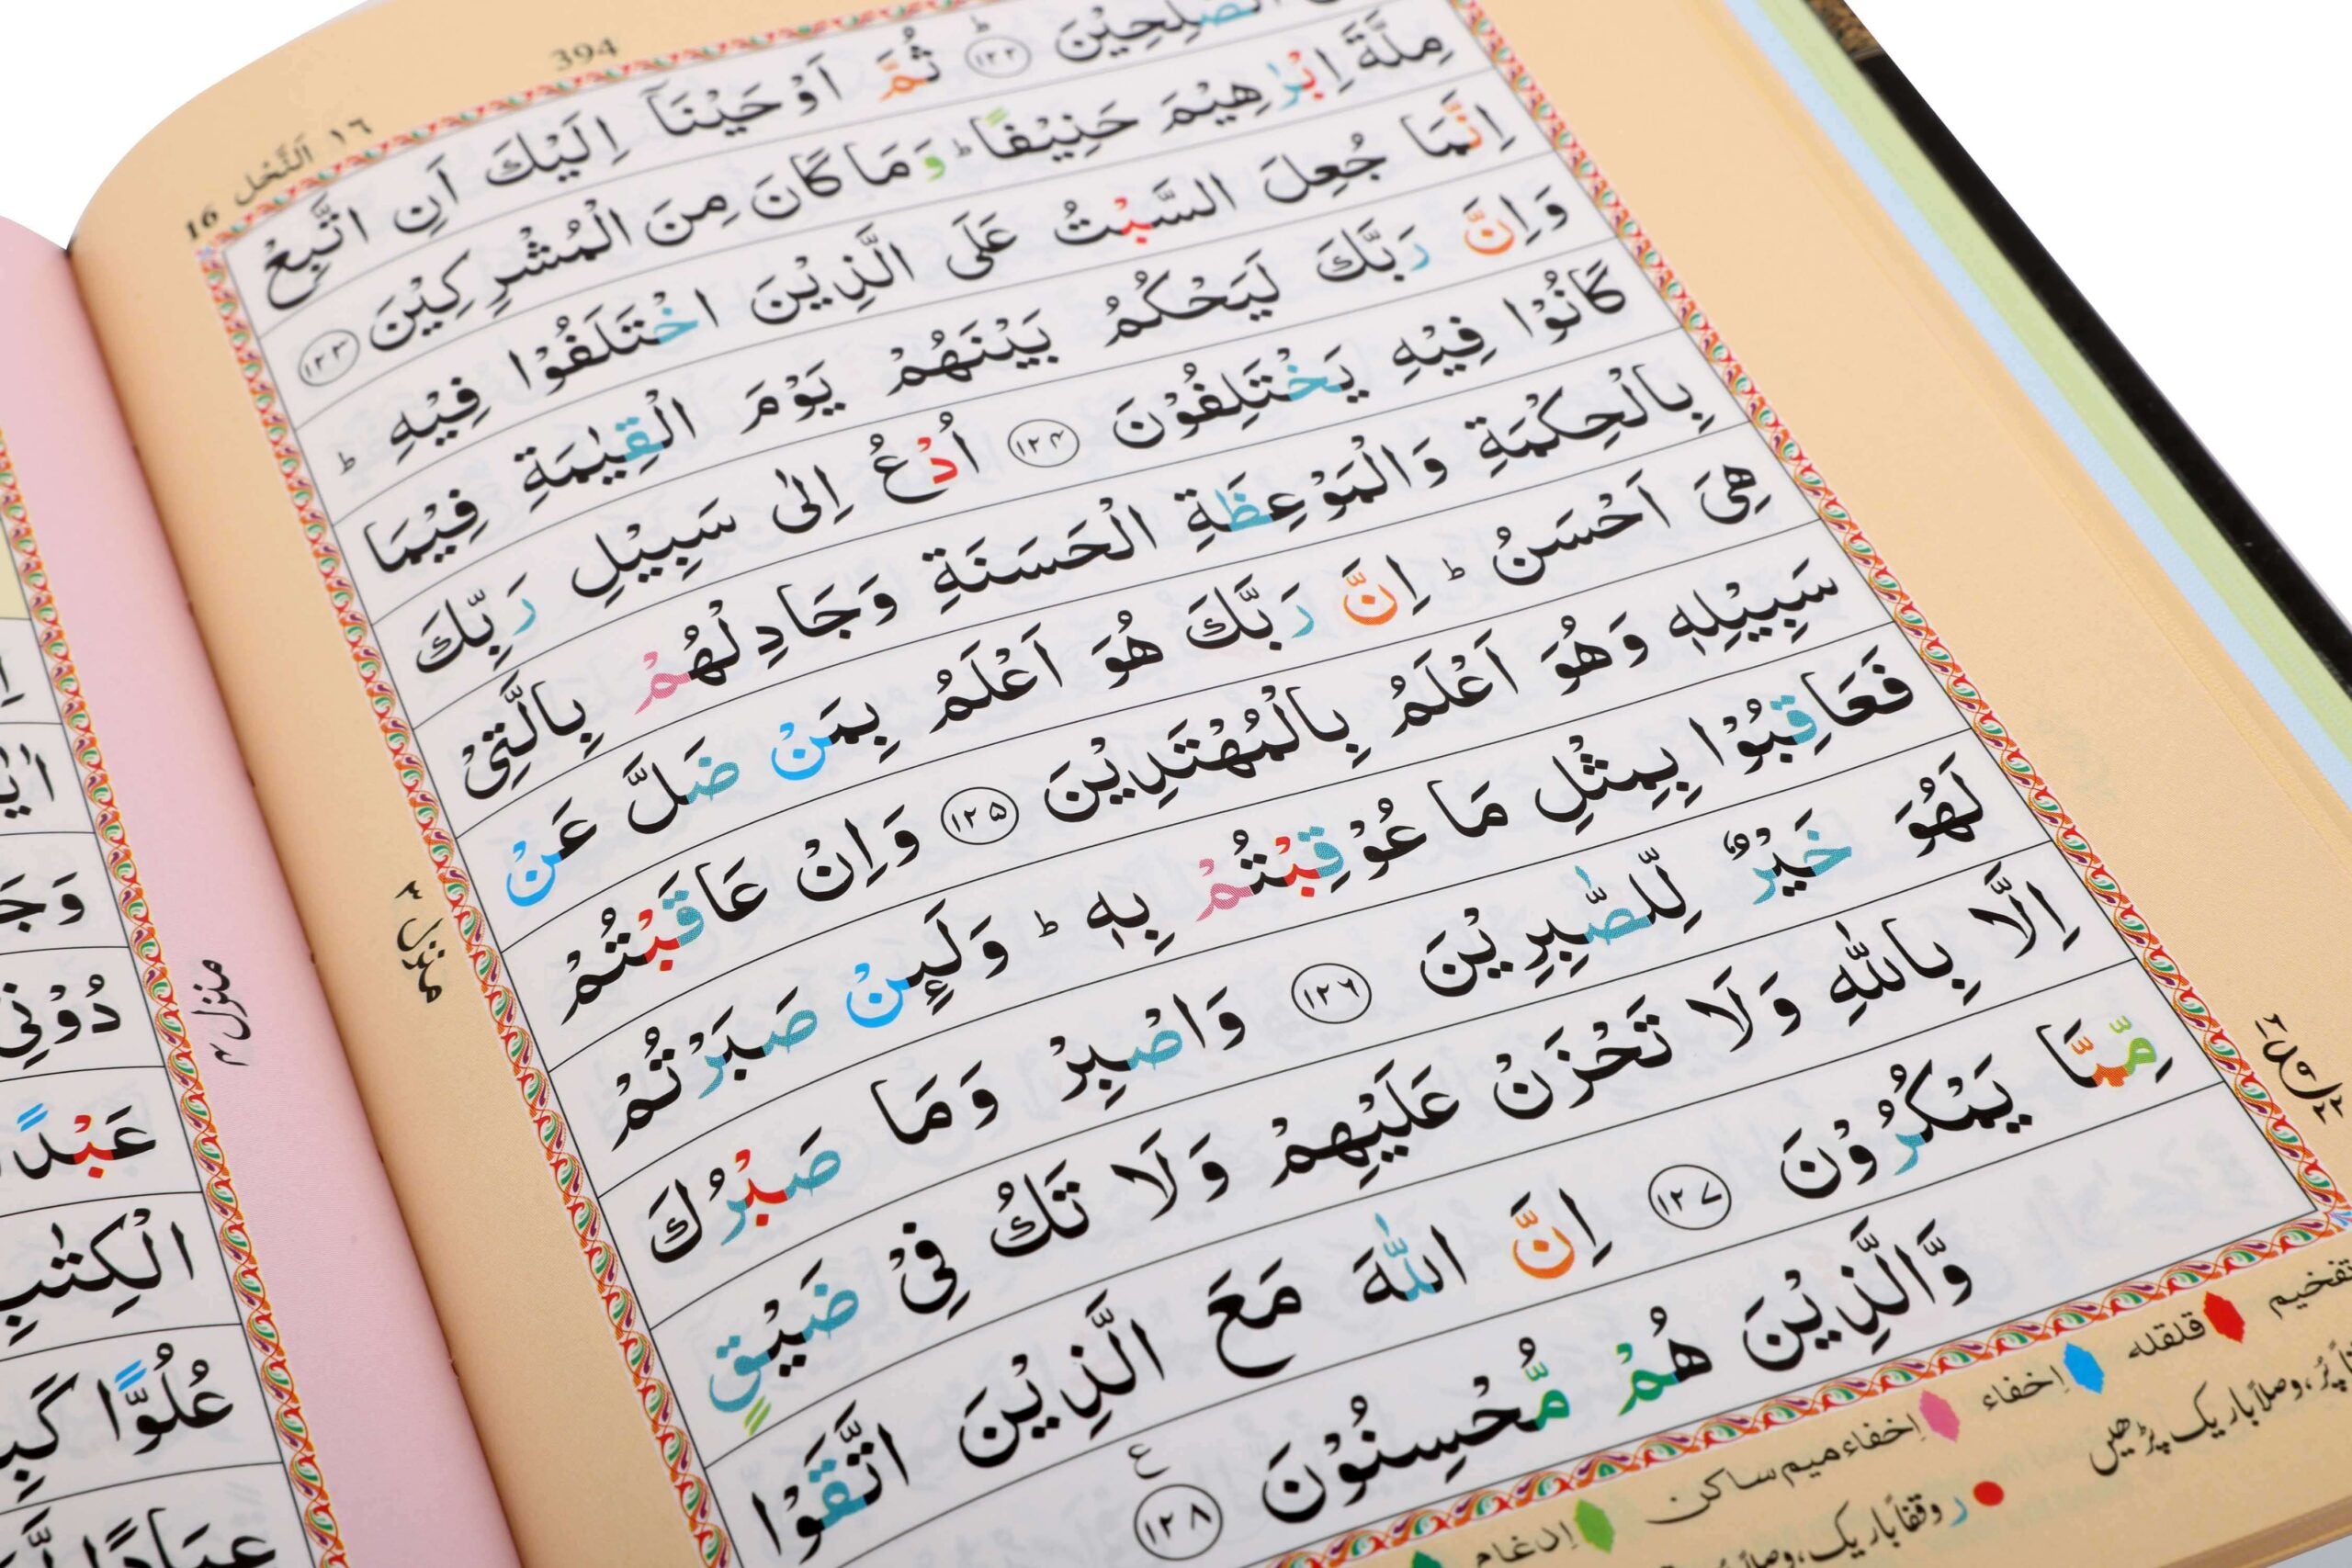 394
١٦ اَلنَّحْل 16
الصّٰلِحِيْنَ ؕ ﴿١٢٢﴾ ثُمَّ اَوْحَيْنَاۤ اِلَيْكَ اَنِ اتَّبِعْ
مِلَّةَ اِبْرٰهِيْمَ حَنِيْفًا ؕ وَمَا كَانَ مِنَ الْمُشْرِكِيْنَ ﴿١٢٣﴾
اِنَّمَا جُعِلَ السَّبْتُ عَلَى الَّذِيْنَ اخْتَلَفُوْا فِيْهِ ؕ
وَاِنَّ رَبَّكَ لَيَحْكُمُ بَيْنَهُمْ يَوْمَ الْقِيٰمَةِ فِيْمَا
كَانُوْا فِيْهِ يَخْتَلِفُوْنَ ﴿١٢٤﴾ اُدْعُ اِلٰى سَبِيْلِ رَبِّكَ
بِالْحِكْمَةِ وَالْمَوْعِظَةِ الْحَسَنَةِ وَجَادِلْهُمْ بِالَّتِيْ
هِىَ اَحْسَنُ ؕ اِنَّ رَبَّكَ هُوَ اَعْلَمُ بِمَنْ ضَلَّ عَنْ
سَبِيْلِهٖ وَهُوَ اَعْلَمُ بِالْمُهْتَدِيْنَ ﴿١٢٥﴾ وَاِنْ عَاقَبْتُمْ
فَعَاقِبُوْا بِمِثْلِ مَا عُوْقِبْتُمْ بِهٖ ؕ وَلَىِٕنْ صَبَرْتُمْ
لَهُوَ خَيْرٌ لِّلصّٰبِرِيْنَ ﴿١٢٦﴾ وَاصْبِرْ وَمَا صَبْرُكَ
اِلَّا بِاللّٰهِ وَلَا تَحْزَنْ عَلَيْهِمْ وَلَا تَكُ فِيْ ضَيْقٍ
مِّمَّا يَمْكُرُوْنَ ﴿١٢٧﴾ اِنَّ اللّٰهَ مَعَ الَّذِيْنَ اتَّقَوْا
وَّالَّذِيْنَ هُمْ مُّحْسِنُوْنَ ﴿١٢٨﴾
منزل ٣
تفخیم قلقله اِخفاء اِخفاء میم ساکن اِدغام
پُر، وصلاً باریک پڑھیں ر وقفاً باریک، وصلاً
وَجَ
دُوْنِيْ
عَبْدًا
الْكِتٰبِ
عُلُوًّا كَبِ
منزل ٤